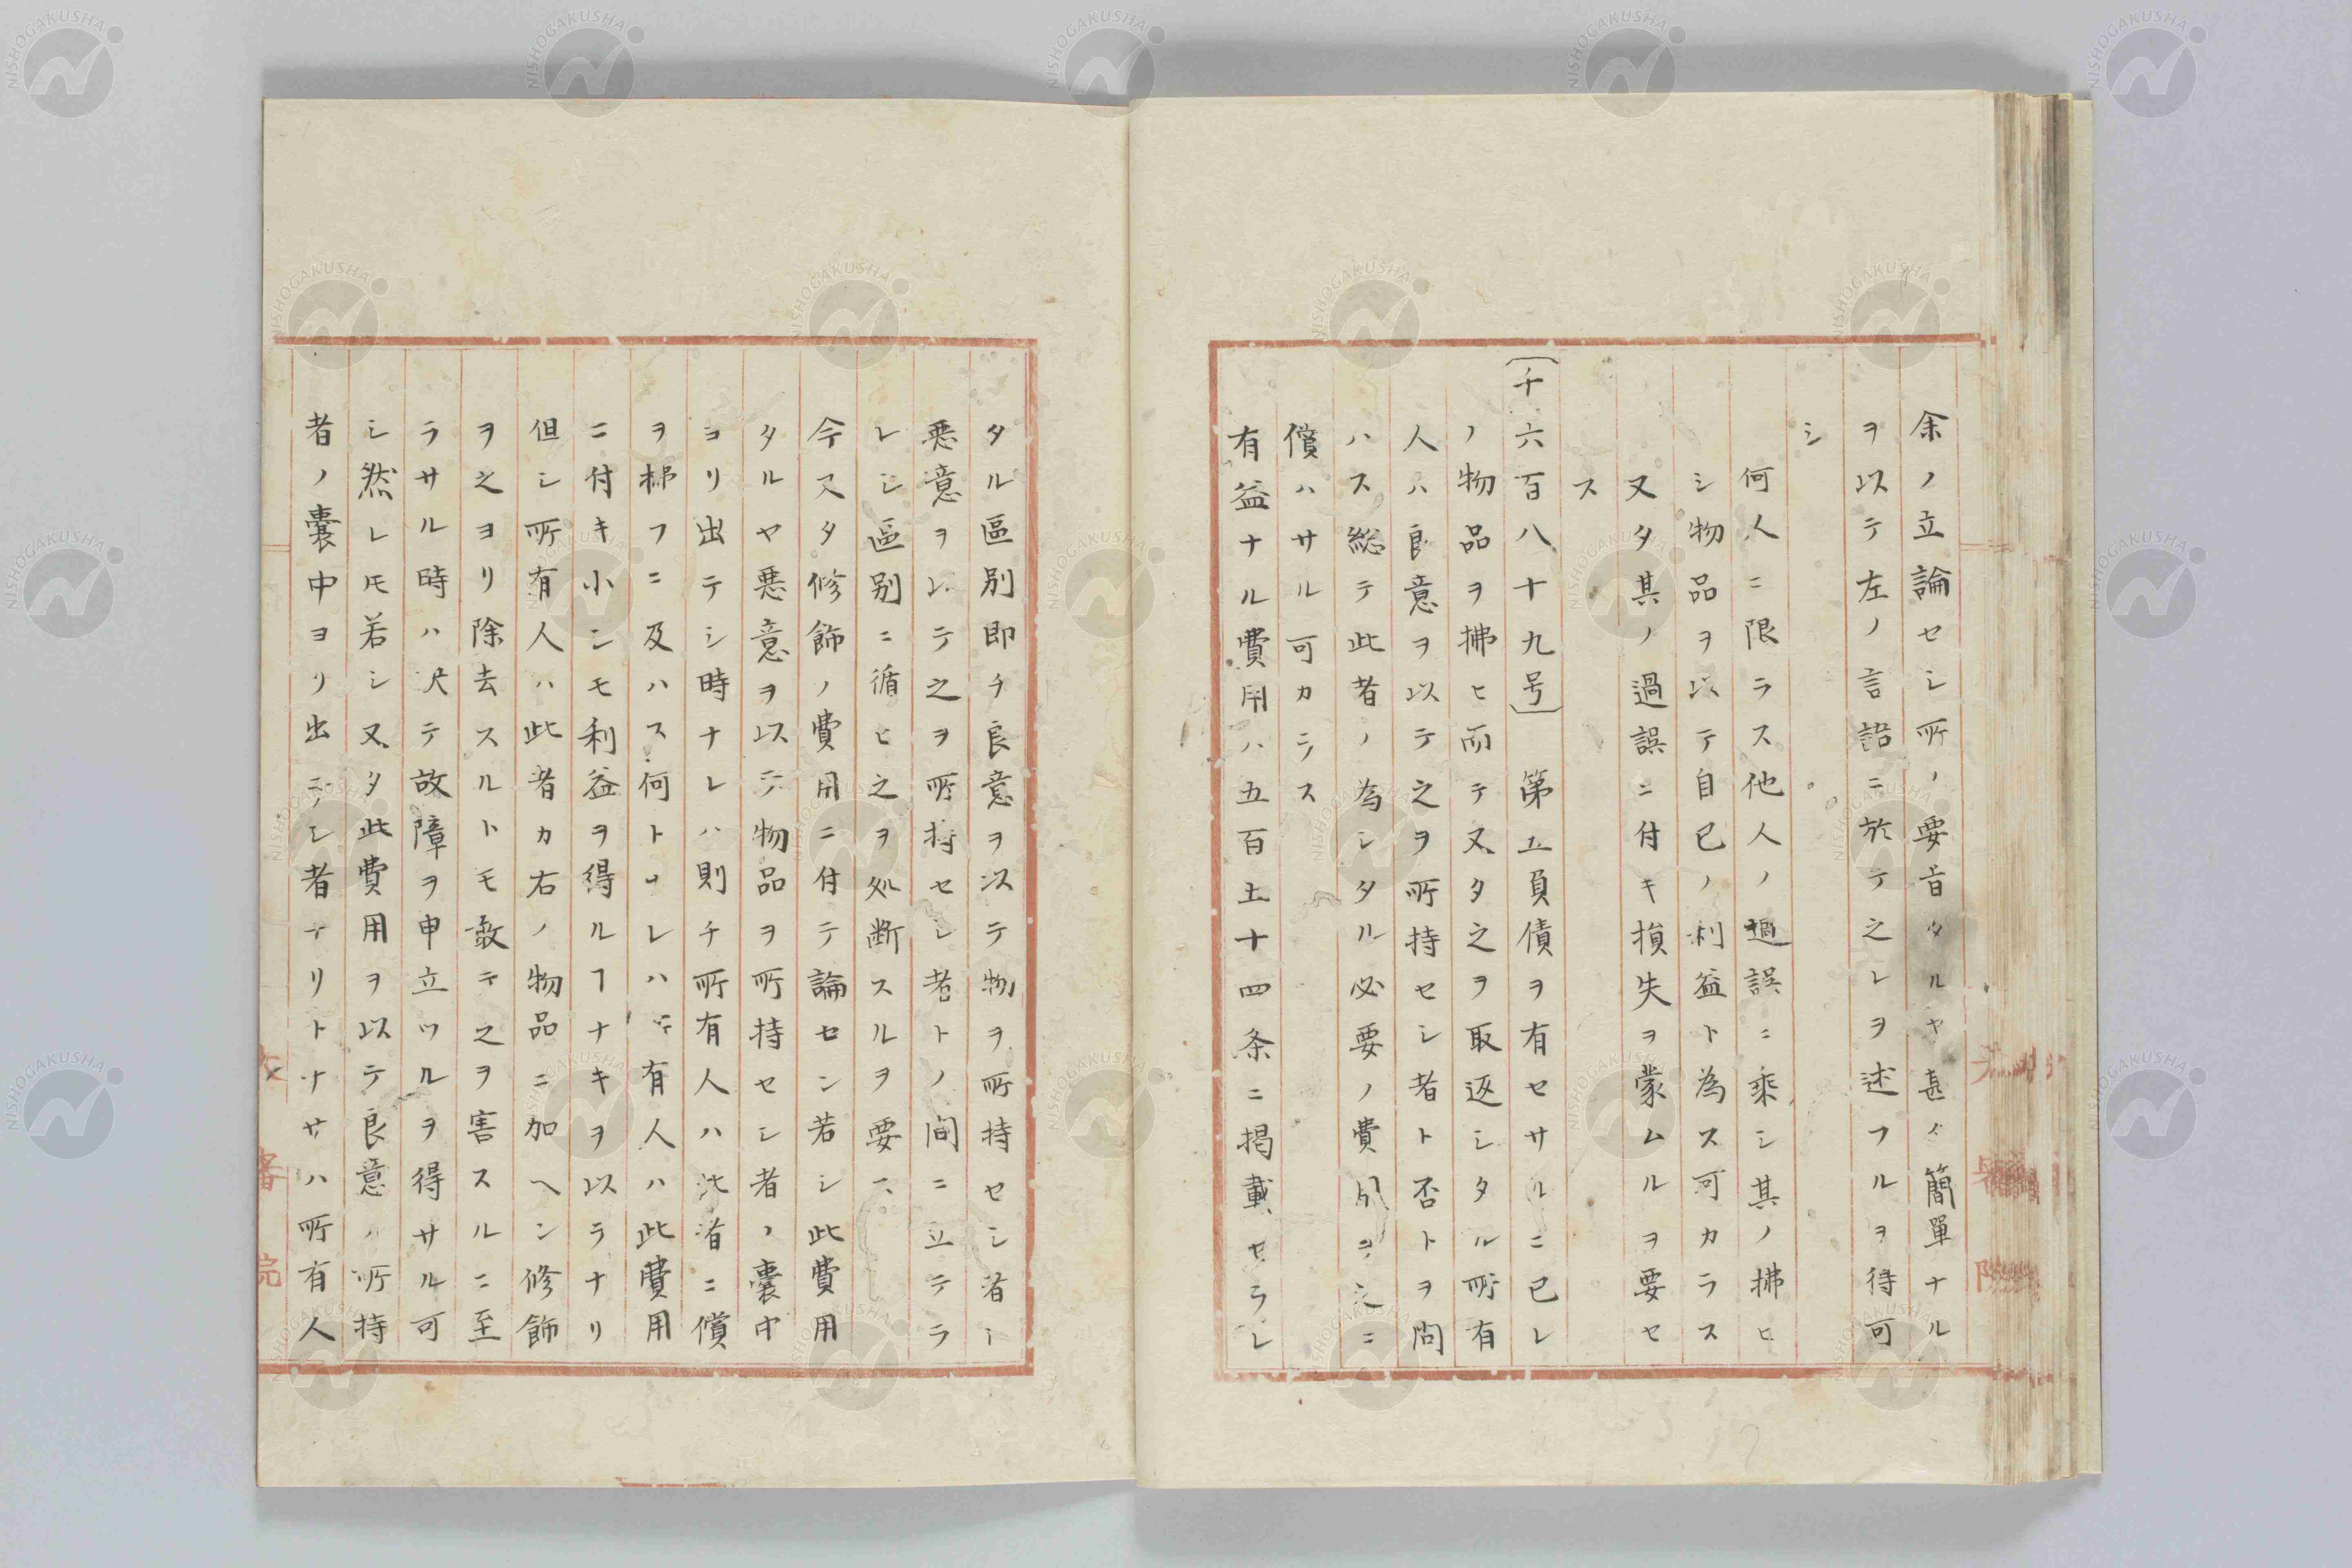 余ノ立論セシ所ノ要旨タルヤ甚タ簡單ナル
ヲ以テ左ノ言語ニ於テ之レヲ述フルヲ得可
シ
何人ニ限ラス他人ノ過誤ニ乘シ其ノ拂ヒ
シ物品ヲ以テ自己ノ利益ト為ス可カラス
又タ其ノ過誤ニ付キ損失ヲ蒙ムルヲ要セ
ス
〔千六百八十九号〕 第五負債ヲ有セサルニ已レ
ノ物品ヲ拂ヒ而テ又タ之ヲ取返シタル所有
人ハ良意ヲ以テ之ヲ所持セシ者ト否トヲ問
ハス総テ此者ノ為シタル必要ノ費用ヲ之ニ
償ハサル可カラス
有益ナル費用ハ五百五十四条ニ掲載セラレ
タル區別即チ良意ヲ以テ物ヲ所持セシ者ト
悪意ヲ以テ之ヲ所持セシ者トノ間ニ立テラ
レシ區別ニ循ヒ之ヲ処断スルヲ要ス
今又タ修飾ノ費用ニ付テ論セン若シ此費用
タルヤ悪意ヲ以テ物品ヲ所持セシ者ノ囊中
ヨリ出テシ時ナレハ則チ所有人ハ此者ニ償
ヲ拂フニ及ハス何トナレハ所有人ハ此費用
ニ付キ小シモ利益ヲ得ルヿナキヲ以テナリ
但シ所有人ハ此者カ右ノ物品ニ加ヘン修飾
ヲ之ヨリ除去スルトモ敢テ之ヲ害スルニ至
ラサル時ハ决テ故障ヲ申立ツルヲ得サル可
シ然レㇳモ若シ又タ此費用ヲ以テ良意ノ所持
者ノ囊中ヨリ出テシ者ナリトナサハ所有人
NISHOGAKUSHA